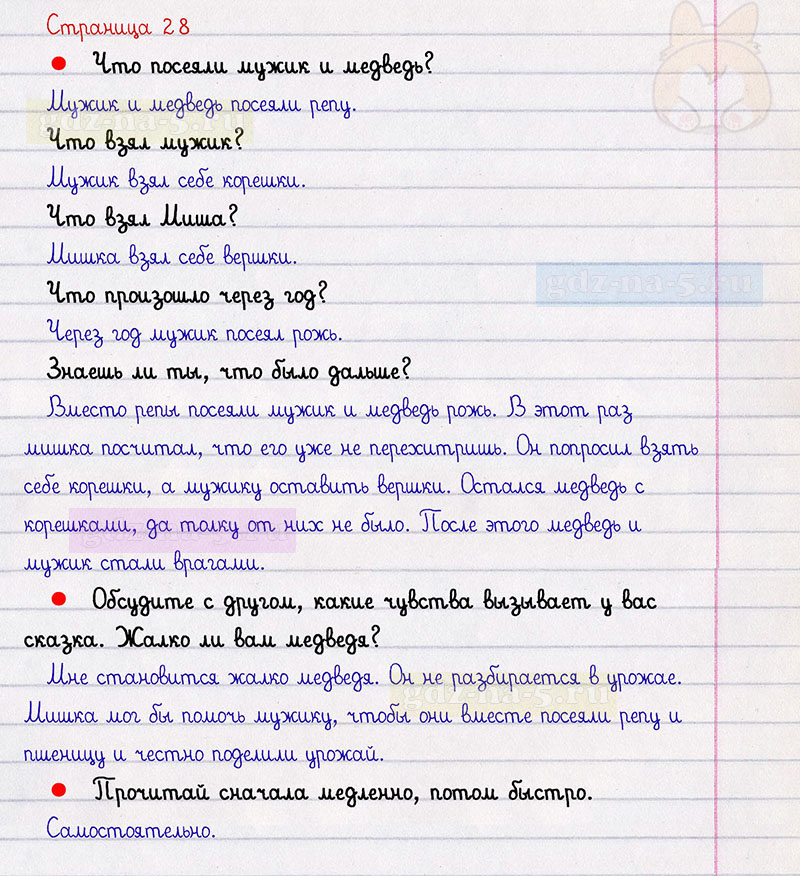 Страница 28
Что посеяли мужик и медведь?
Мужик и медведь посеяли репу.
gdz-na-5.ru
Что взял мужик?
Мужик взял себе корешки.
Что взял Миша?
Мишка взял себе вершки.
gdz-na-5.ru
Что произошло через год?
Через год мужик посеял рожь.
Знаешь ли ты, что было дальше?
Вместо репы посеяли мужик и медведь рожь. В этот раз
мишка посчитал, что его уже не перехитришь. Он попросил взять
себе корешки, а мужику оставить вершки. Остался медведь с
корешками, да толку от них не было. После этого медведь и
gdz-na-5.ru
мужик стали врагами.
Обсудите с другом, какие чувства вызывает у вас
сказка. Жалко ли вам медведя?
Мне становится жалко медведя. Он не разбирается в урожае.
gdz-na-5.ru
Мишка мог бы помочь мужику, чтобы они вместе посеяли репу и
пшеницу и честно поделили урожай.
Прочитай сначала медленно, потом быстро.
Самостоятельно.